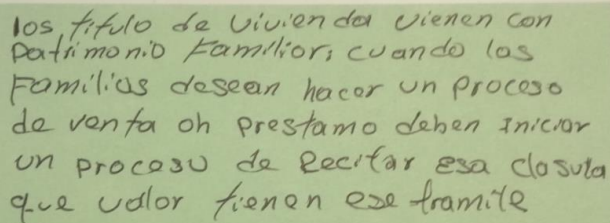 los titulo de vivienda vienen con
Patrimonio Familior, cuando las
Familias desean hacer un proceso
de venta oh prestamo deben Iniciar
un proceso de Recitar esa clasula
que valor tienen ese tramite